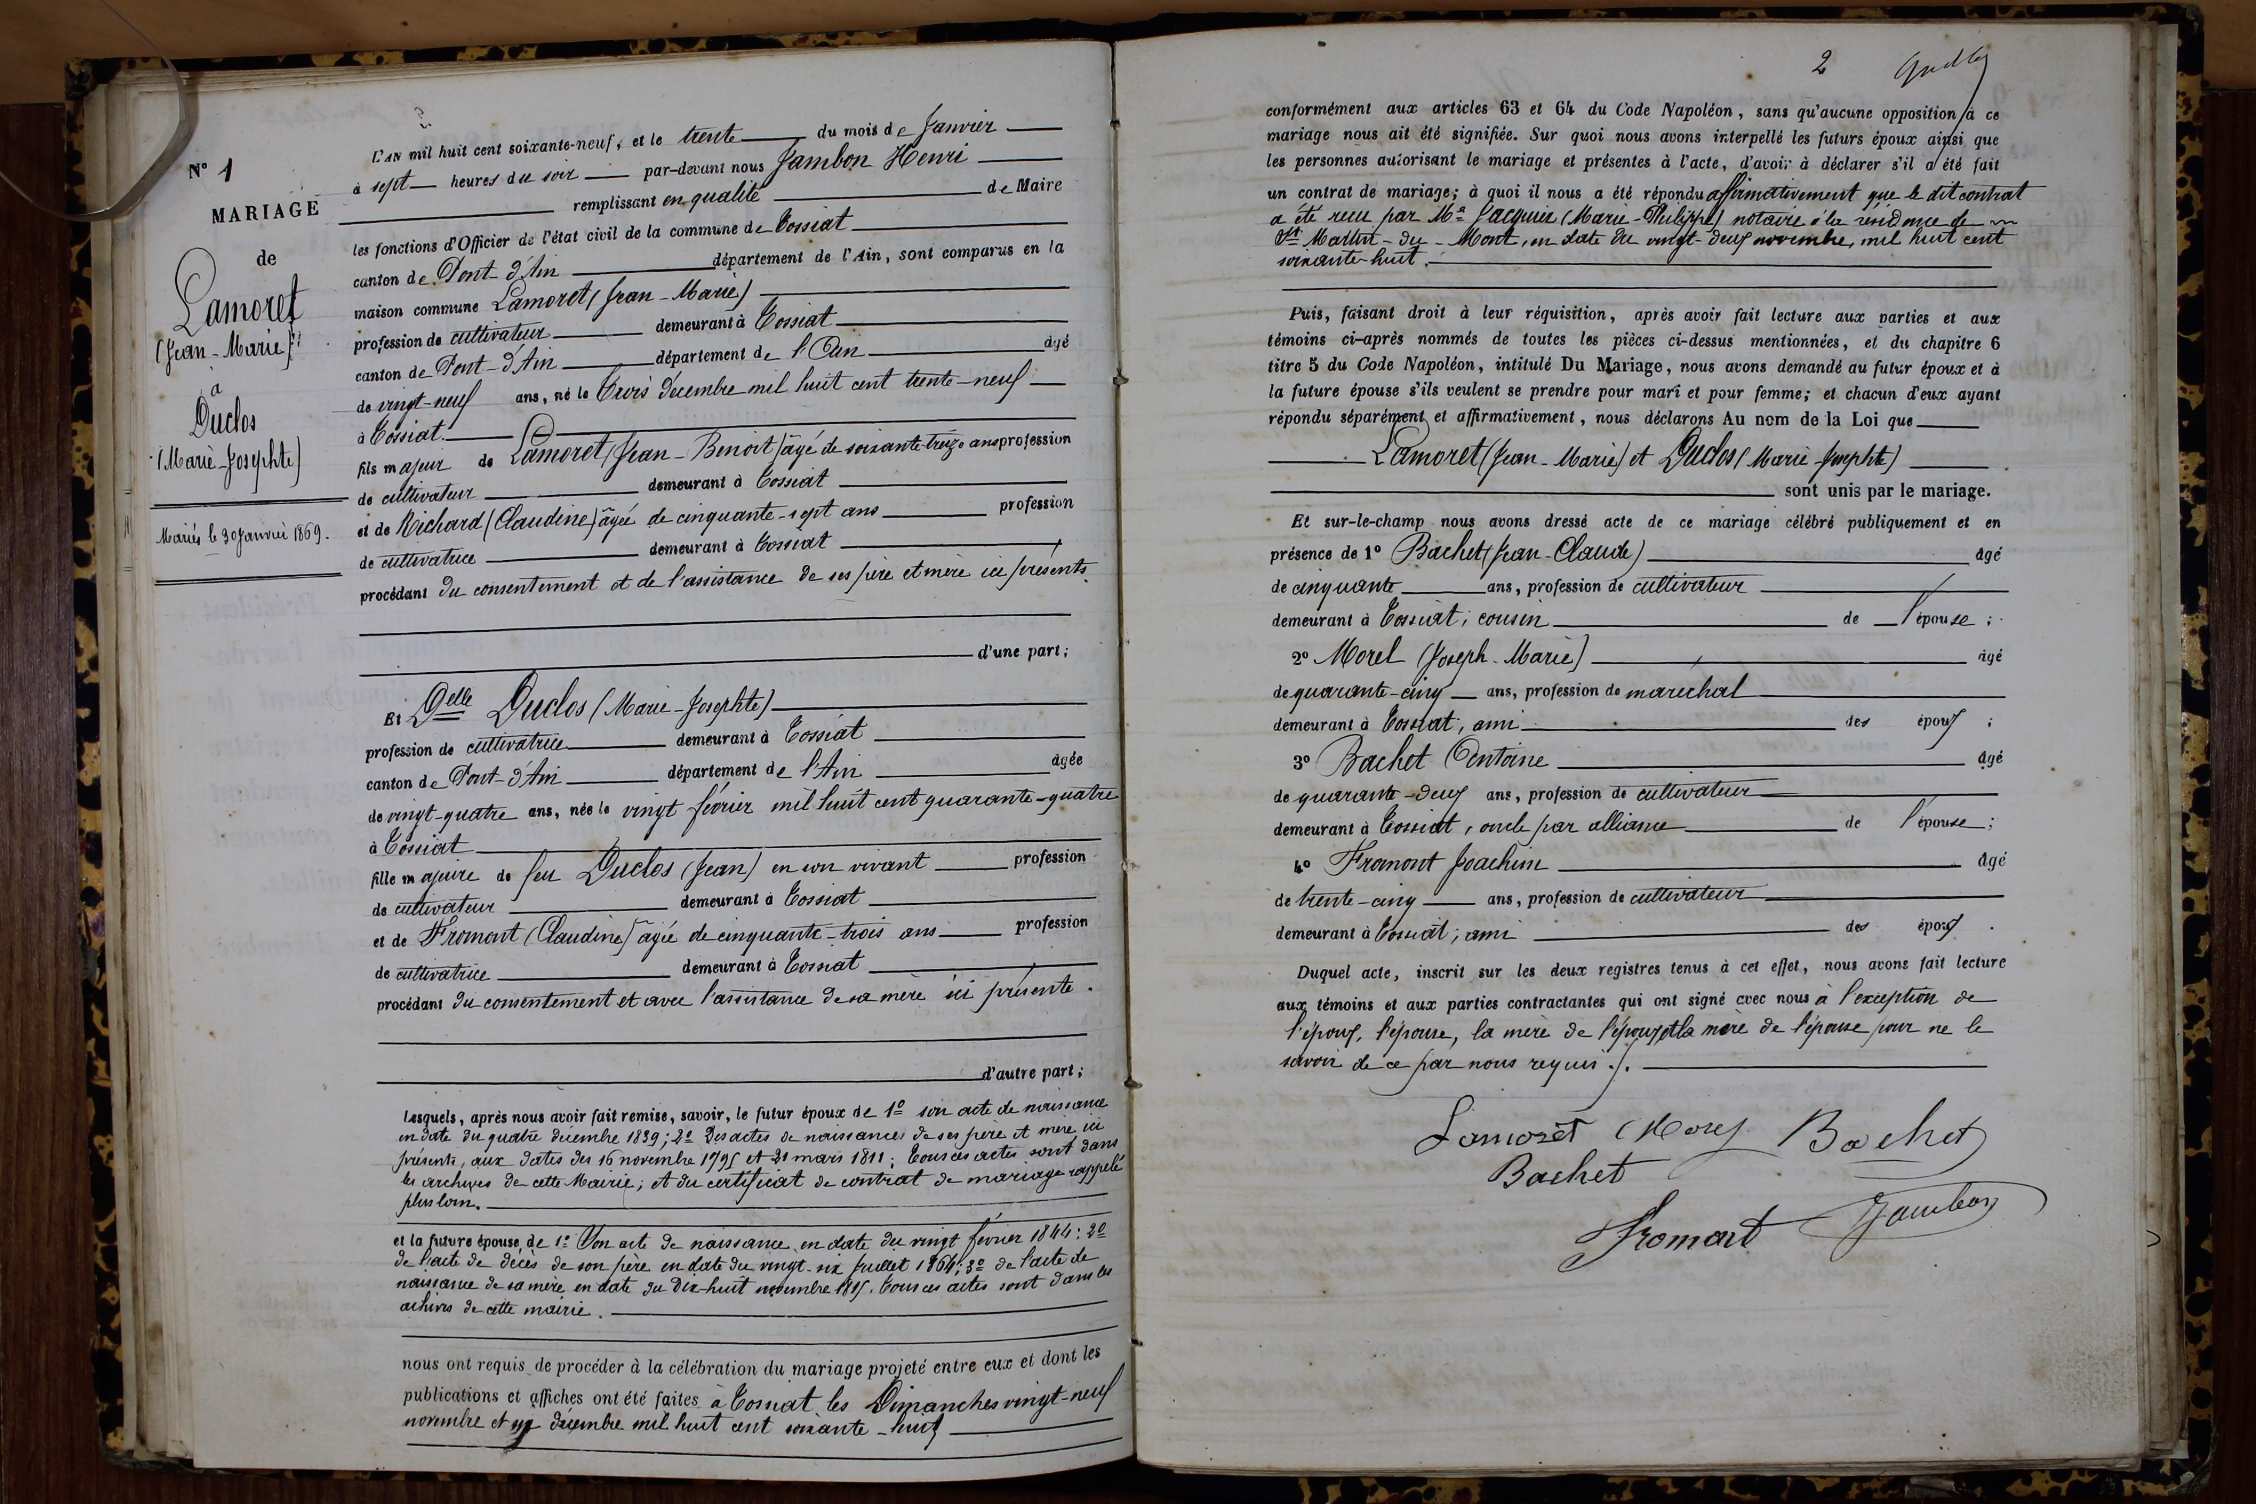 N° 1
MARIAGE
de
Lamoret
(Jean-Marie)
à
Duclos
(Marie-Josephte)
Mariés le 30 Janvier 1869.
L'AN mil huit cent soixante-neuf, et le trente du mois de Janvier
à sept heures du soir par-devant nous Jambon Henri
remplissant en qualité de Maire
les fonctions d'Officier de l'état civil de la commune de Tossiat
canton de Pont-d'Ain département de l'Ain, sont comparus en la
maison commune Lamoret (Jean-Marie)
profession de cultivateur demeurant à Tossiat
canton de Pont-d'Ain département de l'Ain âgé
de vingt-neuf ans, né le trois décembre mil huit cent trente-neuf
à Tossiat.
fils majeur de Lamoret (Jean-Benoit) âgé de soixante-treize ans profession
de cultivateur demeurant à Tossiat
et de Richard (Claudine) âgée de cinquante-sept ans profession
de cultivatrice demeurant à Tossiat
procédant du consentement et de l'assistance de ses père et mère ici présents
d'une part;
Et Delle Duclos (Marie-Josephte)
profession de cultivatrice demeurant à Tossiat
canton de Pont-d'Ain département de l'Ain âgée
de vingt-quatre ans, née le vingt février mil huit cent quarante-quatre
à Tossiat
fille majeure de feu Duclos (Jean) en son vivant profession
de cultivateur demeurant à Tossiat
et de Fromont (Claudine) âgée de cinquante-trois ans profession
de cultivatrice demeurant à Tossiat
procédant du consentement et avec l'assistance de sa mère ici présente.
d'autre part;
Lesquels, après nous avoir fait remise, savoir, le futur époux de 1° son acte de naissance
en date du quatre décembre 1839; 2° Des actes de naissances de ses père et mère ici
présents, aux dates des 16 novembre 1795 et 21 mars 1811; Tous ces actes sont dans
les archives de cette Mairie; et du certificat de contrat de mariage rappelé
plus loin.
et la future épouse, de 1° Son acte de naissance en date du vingt février 1844: 2°
de l'acte de décès de son père en date du vingt-six Juillet 1864; 3° de l'acte de
naissance de sa mère en date du Dix-huit novembre 1815. Tous ces actes sont dans les
achives de cette mairie.
nous ont requis de procéder à la célébration du mariage projeté entre eux et dont les
publications et affiches ont été faites à Tossiat les Dimanches vingt-neuf
novembre et décembre mil huit cent soixante-huit
2
conformément aux articles 63 et 64 du Code Napoléon, sans qu'aucune opposition à ce
mariage nous ait été signifiée. Sur quoi nous avons interpellé les futurs époux ainsi que
les personnes autorisant le mariage et présentes à l'acte, d'avoir à déclarer s'il a été fait
un contrat de mariage; à quoi il nous a été répondu affirmativement que le dit contrat
a été reçu par Me Jacquier (Marie-Philippe) notaire à la résidence de
St Martin-du-Mont, en date du vingt-deux novembre, mil huit cent
soixante-huit.
Puis, faisant droit à leur réquisition, après avoir fait lecture aux parties et aux
témoins ci-après nommés de toutes les pièces ci-dessus mentionnées, et du chapitre 6
titre 5 du Code Napoléon, intitulé Du Mariage, nous avons demandé au futur époux et à
la future épouse s'ils veulent se prendre pour mari et pour femme; et chacun d'eux ayant
répondu séparément et affirmativement, nous déclarons Au nom de la Loi que
Lamoret (Jean-Marie) et Duclos (Marie-Josephte)
sont unis par le mariage.
Et sur-le-champ nous avons dressé acte de ce mariage célébré publiquement et en
présence de 1° Bachet (Jean-Claude) âgé
de cinquante ans, profession de cultivateur
demeurant à Tossiat; cousin de l'épouse;
2° Morel (Joseph-Marie) âgé
de quarante-cinq ans, profession de maréchal
demeurant à Tossiat; ami des époux;
3° Bachet Antoine âgé
de quarante-deux ans, profession de cultivateur
demeurant à Tossiat, oncle par alliance de l'épouse;
4° Fromont Joachim âgé
de trente-cinq ans, profession de cultivateur
demeurant à Tossiat; ami des époux.
Duquel acte, inscrit sur les deux registres tenus à cet effet, nous avons fait lecture
aux témoins et aux parties contractantes qui ont signé avec nous à l'exception de
l'époux, l'épouse, la mère de l'époux et la mère de l'épouse pour ne le
savoir de ce par nous requis.
Lamoret Morel Bachet
Bachet
Fromont Jambon